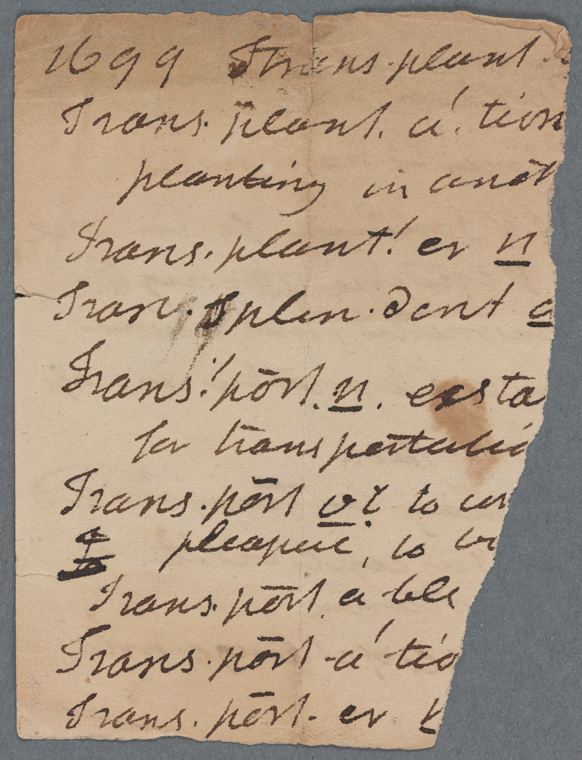 1699 Trans.plant.
Trans.plant.á.tion
planting in anoth
Trans.plant.' er n
Tran.splen.dent a
Trans.'pōrt. n. exsta
for transportatio
Trans.pōrt vt to con
pleasure, to
Trans.pōrt.á.ble
Trans.pōrt-á'tio
Trans.pōrt.er